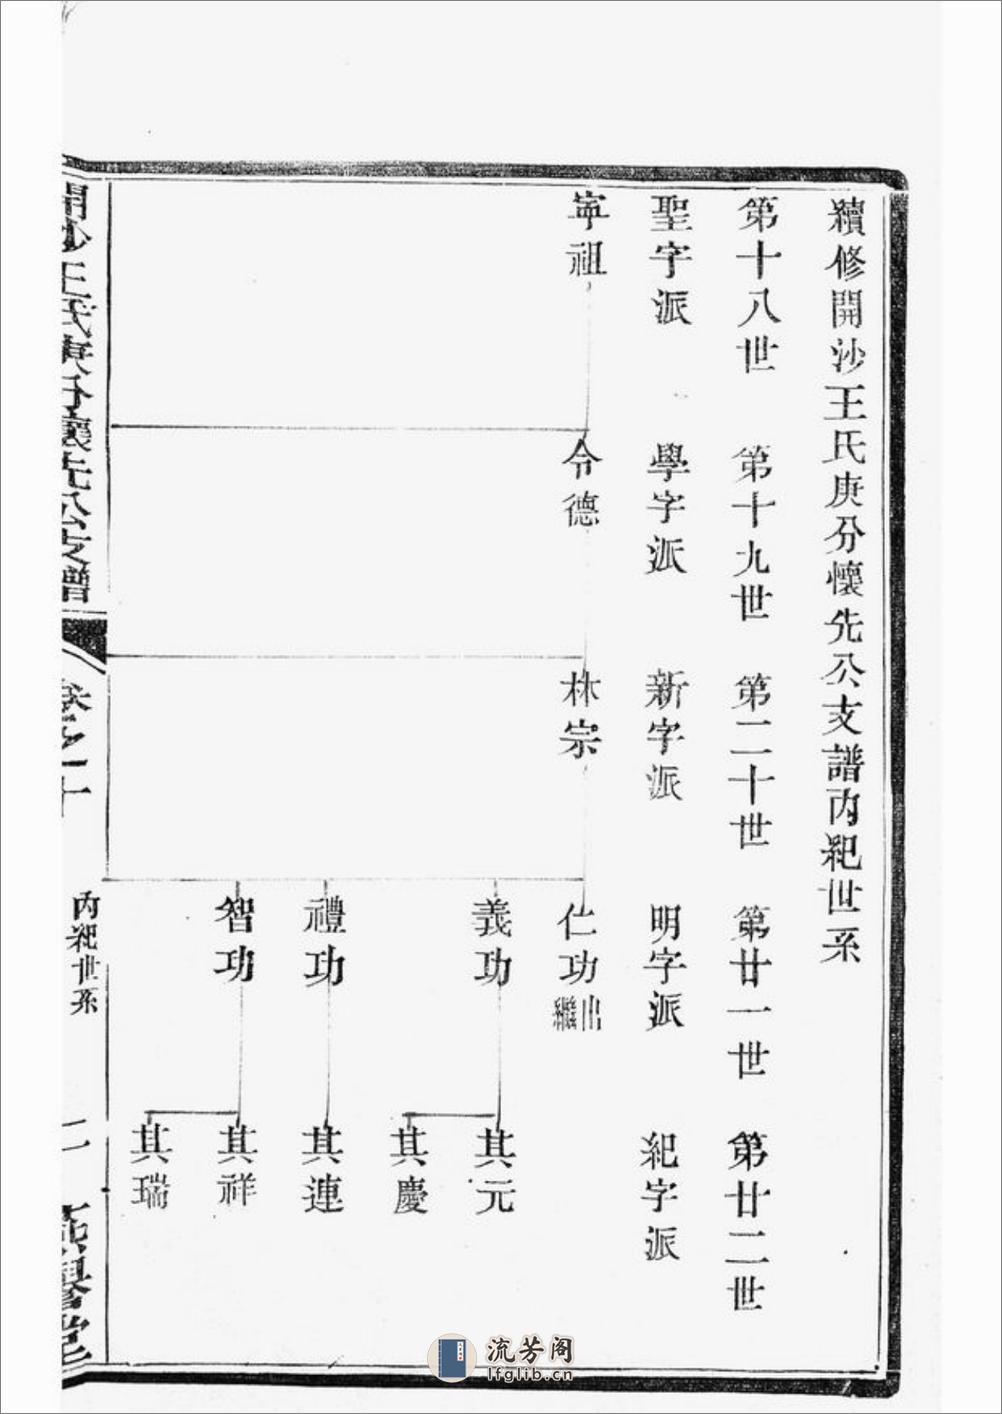 續修開沙王氏庚分懷先公支譜內紀世系
第十八世 第十九世 第二十世 第廿一世 第廿二世
聖字派 學字派 新字派 明字派 紀字派
寧祖 令德 林宗 仁功 出繼
義功 其元
其慶
禮功 其連
智功 其祥
其瑞
開沙王氏庚分懷先公支譜 卷之十 內紀世系 二
流芳阁
lfglib.cn